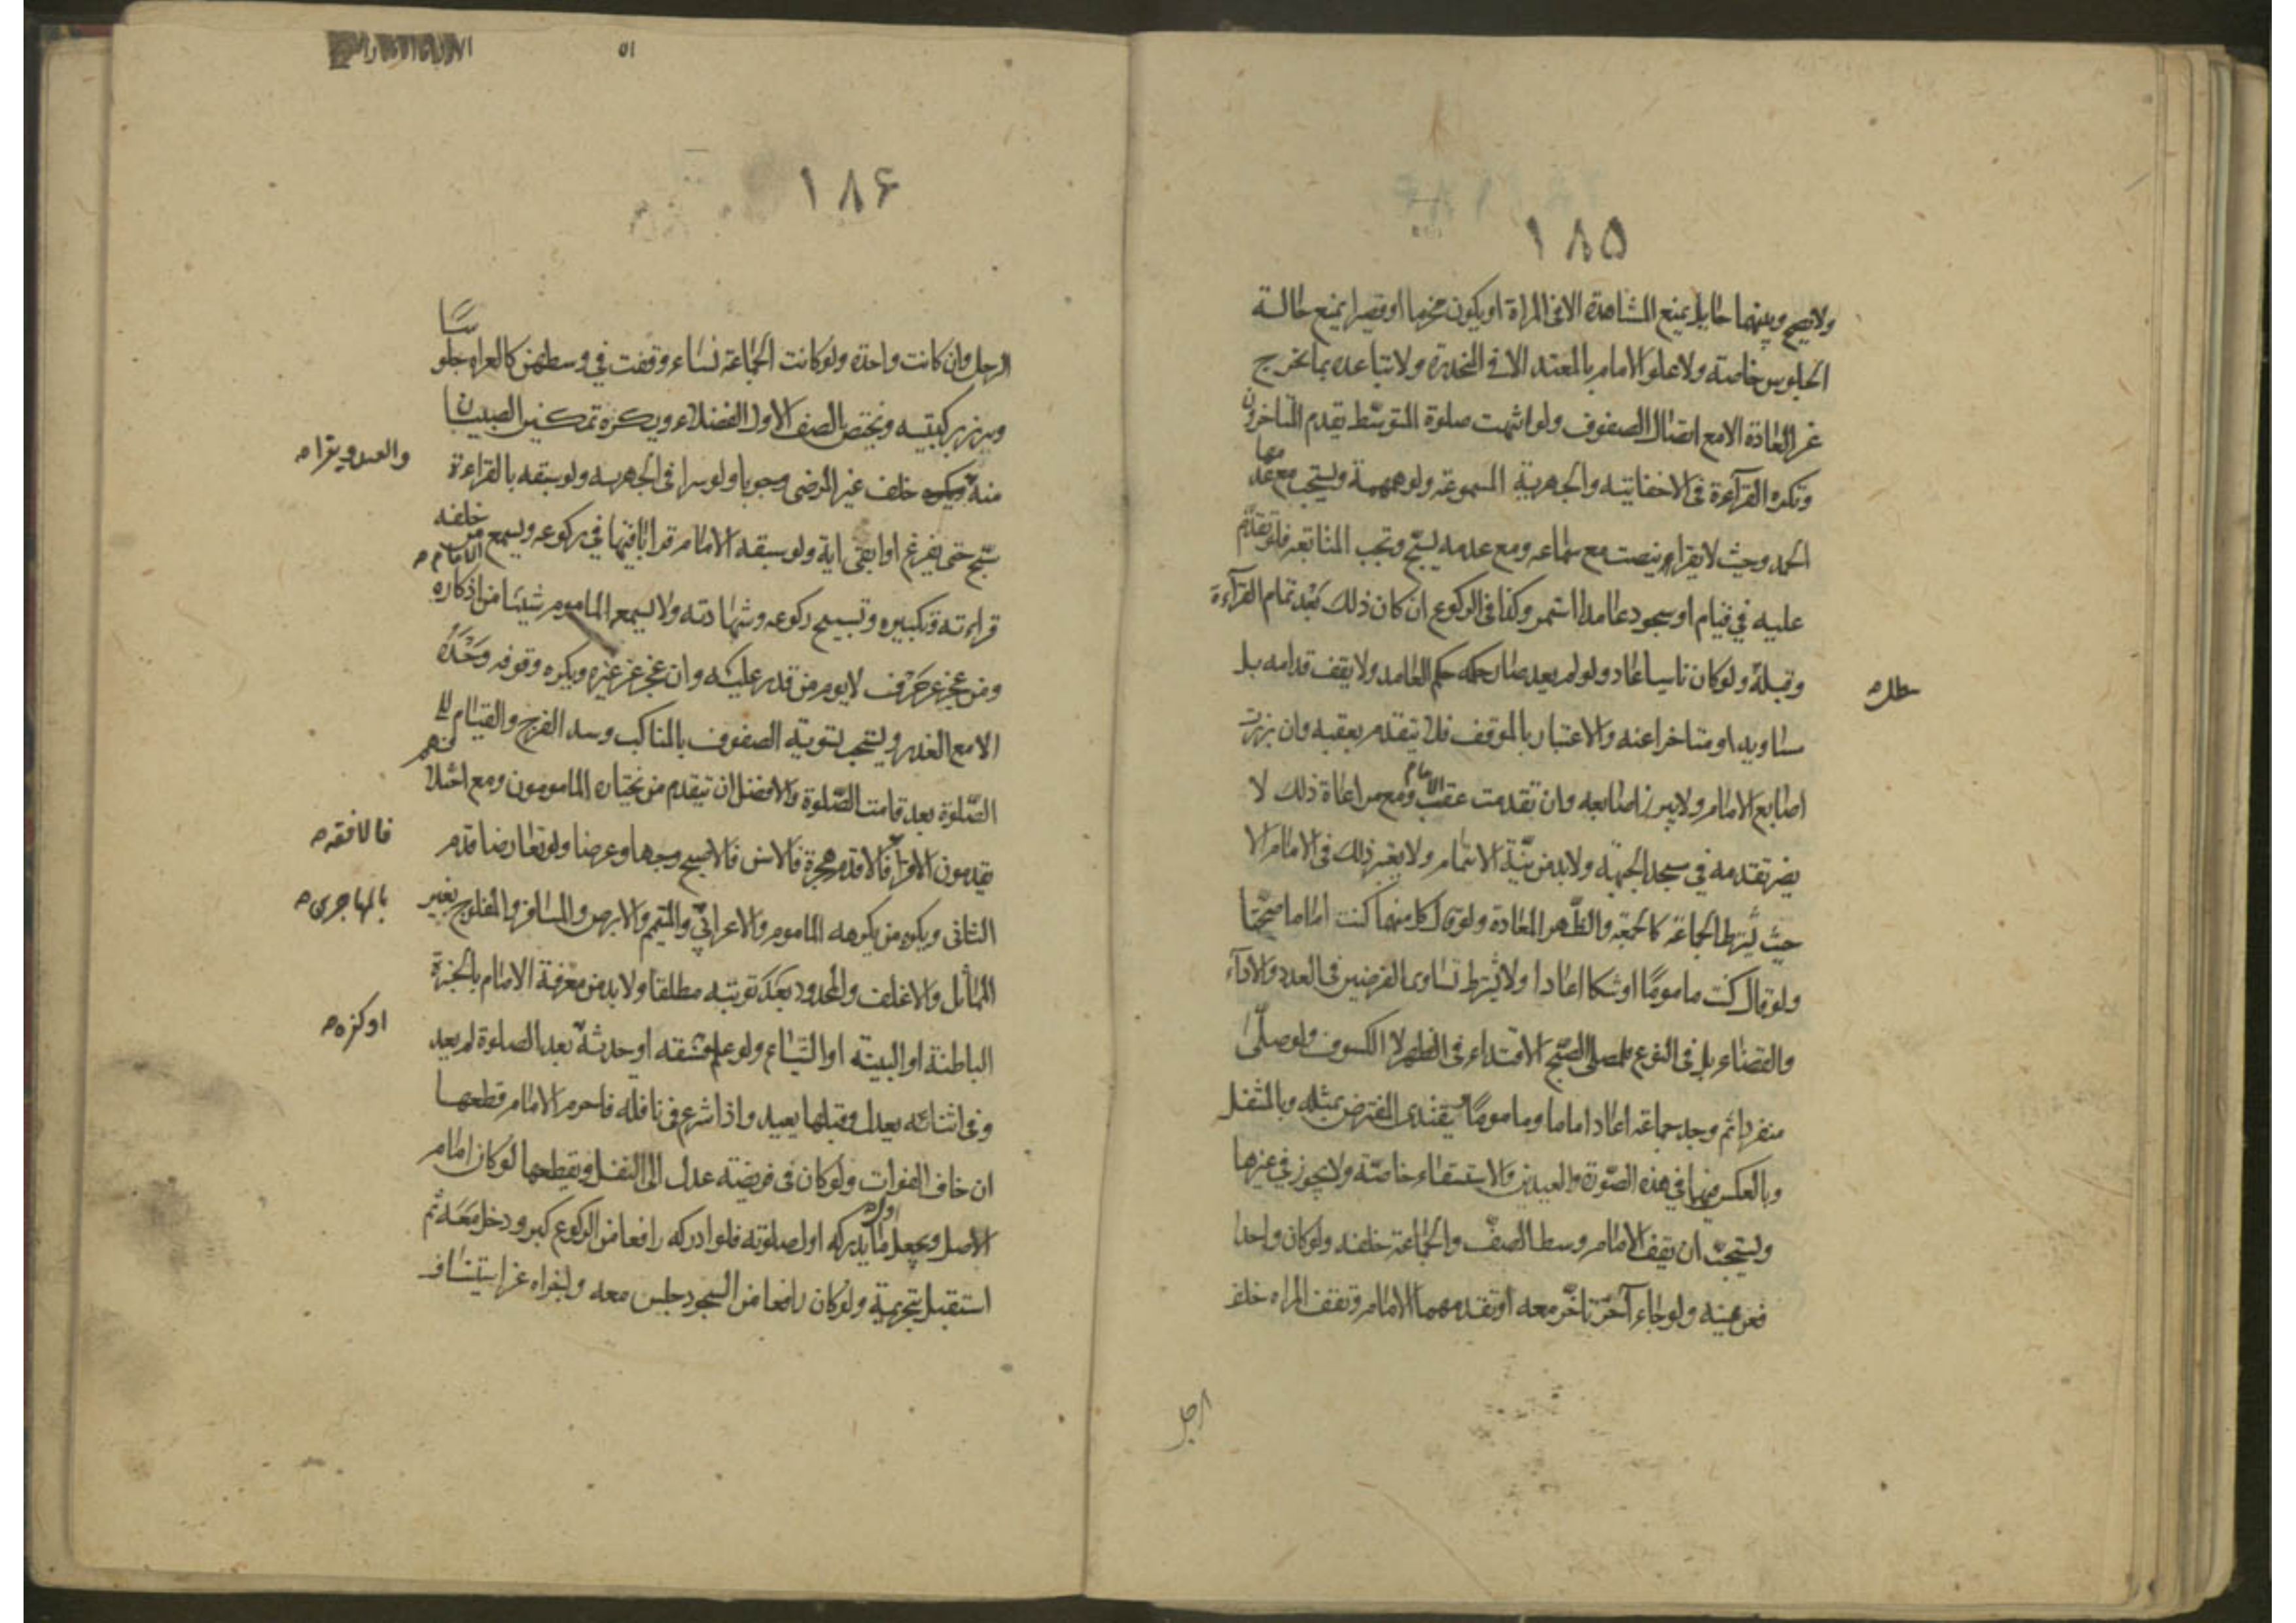 ١٨٥
ولا يصح وبينهما حايل يمنع المشاهدة الا في المراة او يكون مخرما او قصيرا يمنع حالة
الجلوس خاصة ولا علو الامام بالمعتد الا في المنحدرة ولا تباعده بما يخرج
عن العادة الا مع اتصال الصفوف ولو انتهت صلوة المتوسط تقدم المتاخرون
وتكره القرآءة في الاخفاتية والجهرية المسموعة ولو همهمة ويستحب مع عدمها
الحمد وحيث لا يقرا ينصت مع سماعه ومع عدمه يسبح وتجب المتابعة فلو تقدم
عليه في قيام او سجود عامدا استمر وكذا في الركوع ان كان ذلك بعد تمام القرآءة
وقبله ولو كان ناسيا عاد ولو لم يعد صار حكمه حكم العامد ولا يقف قدامه بل
مساويه او متاخرا عنه والاعتبار بالموقف فلا يتقدم بعقبه وان برزت
اصابع الامام ولا يبرز اصابعه وان تقدمت عقب الامام ومع مراعاة ذلك لا
يضر تقدمه في مسجد الجبهة ولا بد من نية الائتمام ولا يعتبر ذلك في الامام الا
حيث يشترط الجماعة كالجمعة والظهر المعادة ولو قال كل منهما كنت اماما صحتا
ولو قال كنت ماموما او شكا اعادا ولا يشترط تساوى الفرضين في العدد والادآء
والقضاء بل في النوع فلمصلى الصبح الاقتداء في الظهر لا الكسوف ولو صلى
منفردا ثم وجد جماعة اعاد اماما وماموما ويقتدى المفترض بمثله وبالمتنفل
وبالعكس فيهما في هذه الصورة والعيدين والاستسقاء خاصة ولا يجوز في غيرها
ويستحب ان يقف الامام وسط الصف والجماعة خلفه ولو كان واحدا
فعن يمينه ولو جاء آخر تاخر معه او تقدمهما الامام وتقف المراه خلف
الرجل
١٨۶
الرجل وان كانت واحدة ولو كانت الجماعة نساء وقفت في وسطهن كالعراه جلوسا
ويبرز بركبتيه ويختص بالصف الاول الفضلاء ويكره تمكين الصبيان
والعبد ويقرا
منه خلف غير المرضى وجوبا ولو سرا في الجهرية ولو سبقه بالقراءة
سبح حتى يفرغ او ابقى اية ولو سبقه الامام قرا باقيها في ركوعه ويسمع من خلفه
الامام
قراءته وتكبيره وتسبيح ركوعه وشهادته ولا يسمع الماموم شيئا من اذكاره
ومن عجز عن حرف لا يوم من قدر عليه وان عجز عن غيره ويكره وقوفه وحده
الا مع العذر ويستحب تسوية الصفوف بالمناكب وسد الفرج والقيام الى
الصلوة بعد قامت الصلوة والافضل ان يتقدم من يختاره المامومون ومع اختلافهم
فالافقه
يقدمون الاقرا فالاقدم هجرة فالاسن فالاصبح وجها وعرضا ولو تعارضا قدم
بالمهاجرى
الثانى ويكره من يكرهه الماموم والاعرابي والمتيمم والابرص والمسافر والمفلوج بغير
المماثل والاغلف والمحدود بعد توبته مطلقا ولا بد من معرفة الامام بالخبرة
او كفره
الباطنة او البينة او الشياع ولو علم فسقه او حدثه بعد الصلوة لم يعد
وفي اثنائه يعدل وقبلها يعيد واذا شرع في نافلة فاحرم الامام قطعها
ان خاف الفوات ولو كان في فريضة عدل الى النفل ويقطعها لو كان امام
الاصل ويجعل ما يدركه اول صلوته فلو ادركه رافعا من الركوع كبر ودخل معه ثم
استقبل بتحريمة ولو كان رافعا من السجود جلس معه واجزاه عن استيناف